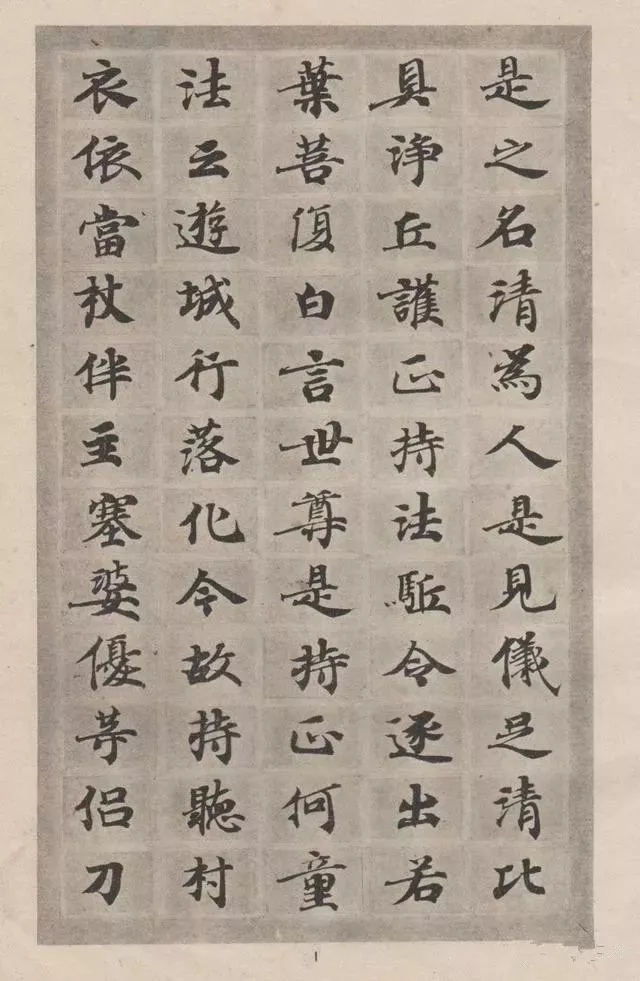 是之名清為人是見儀足清比
具諍丘護正持法駈令逐出若
葉菩復白言世尊是持正何童
法云遊城行落化令故持聽村
衣依當杖伴主塞婆優等侶刀
1